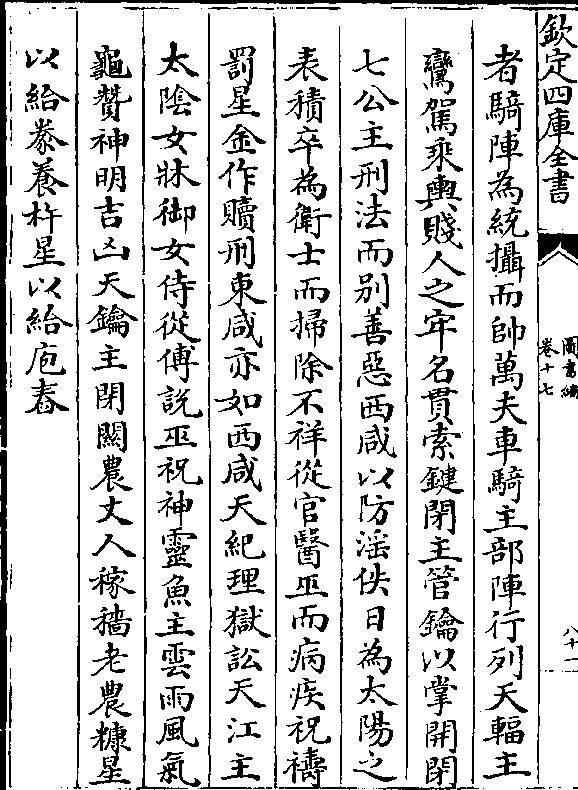 欽定四庫全書
圖書編
卷十七
八十一
者騎陣為統攝而帥萬夫車騎主部陣行列天輻主
鸞駕乘輿賤人之牢名貫索鍵閉主管鑰以掌開閉
七公主刑法而别善惡西咸以防淫佚日為太陽之
表積卒為衛士而掃除不祥從官醫巫而病疾祝禱
罰星金作贖刑東咸亦如西咸天紀理獄訟天江主
太陰女牀御女侍從傅說巫祝神靈魚主雲雨風氣
龜贊神明吉凶天鑰主閉關農丈人稼穡老農糠星
以給豢養杵星以給庖舂